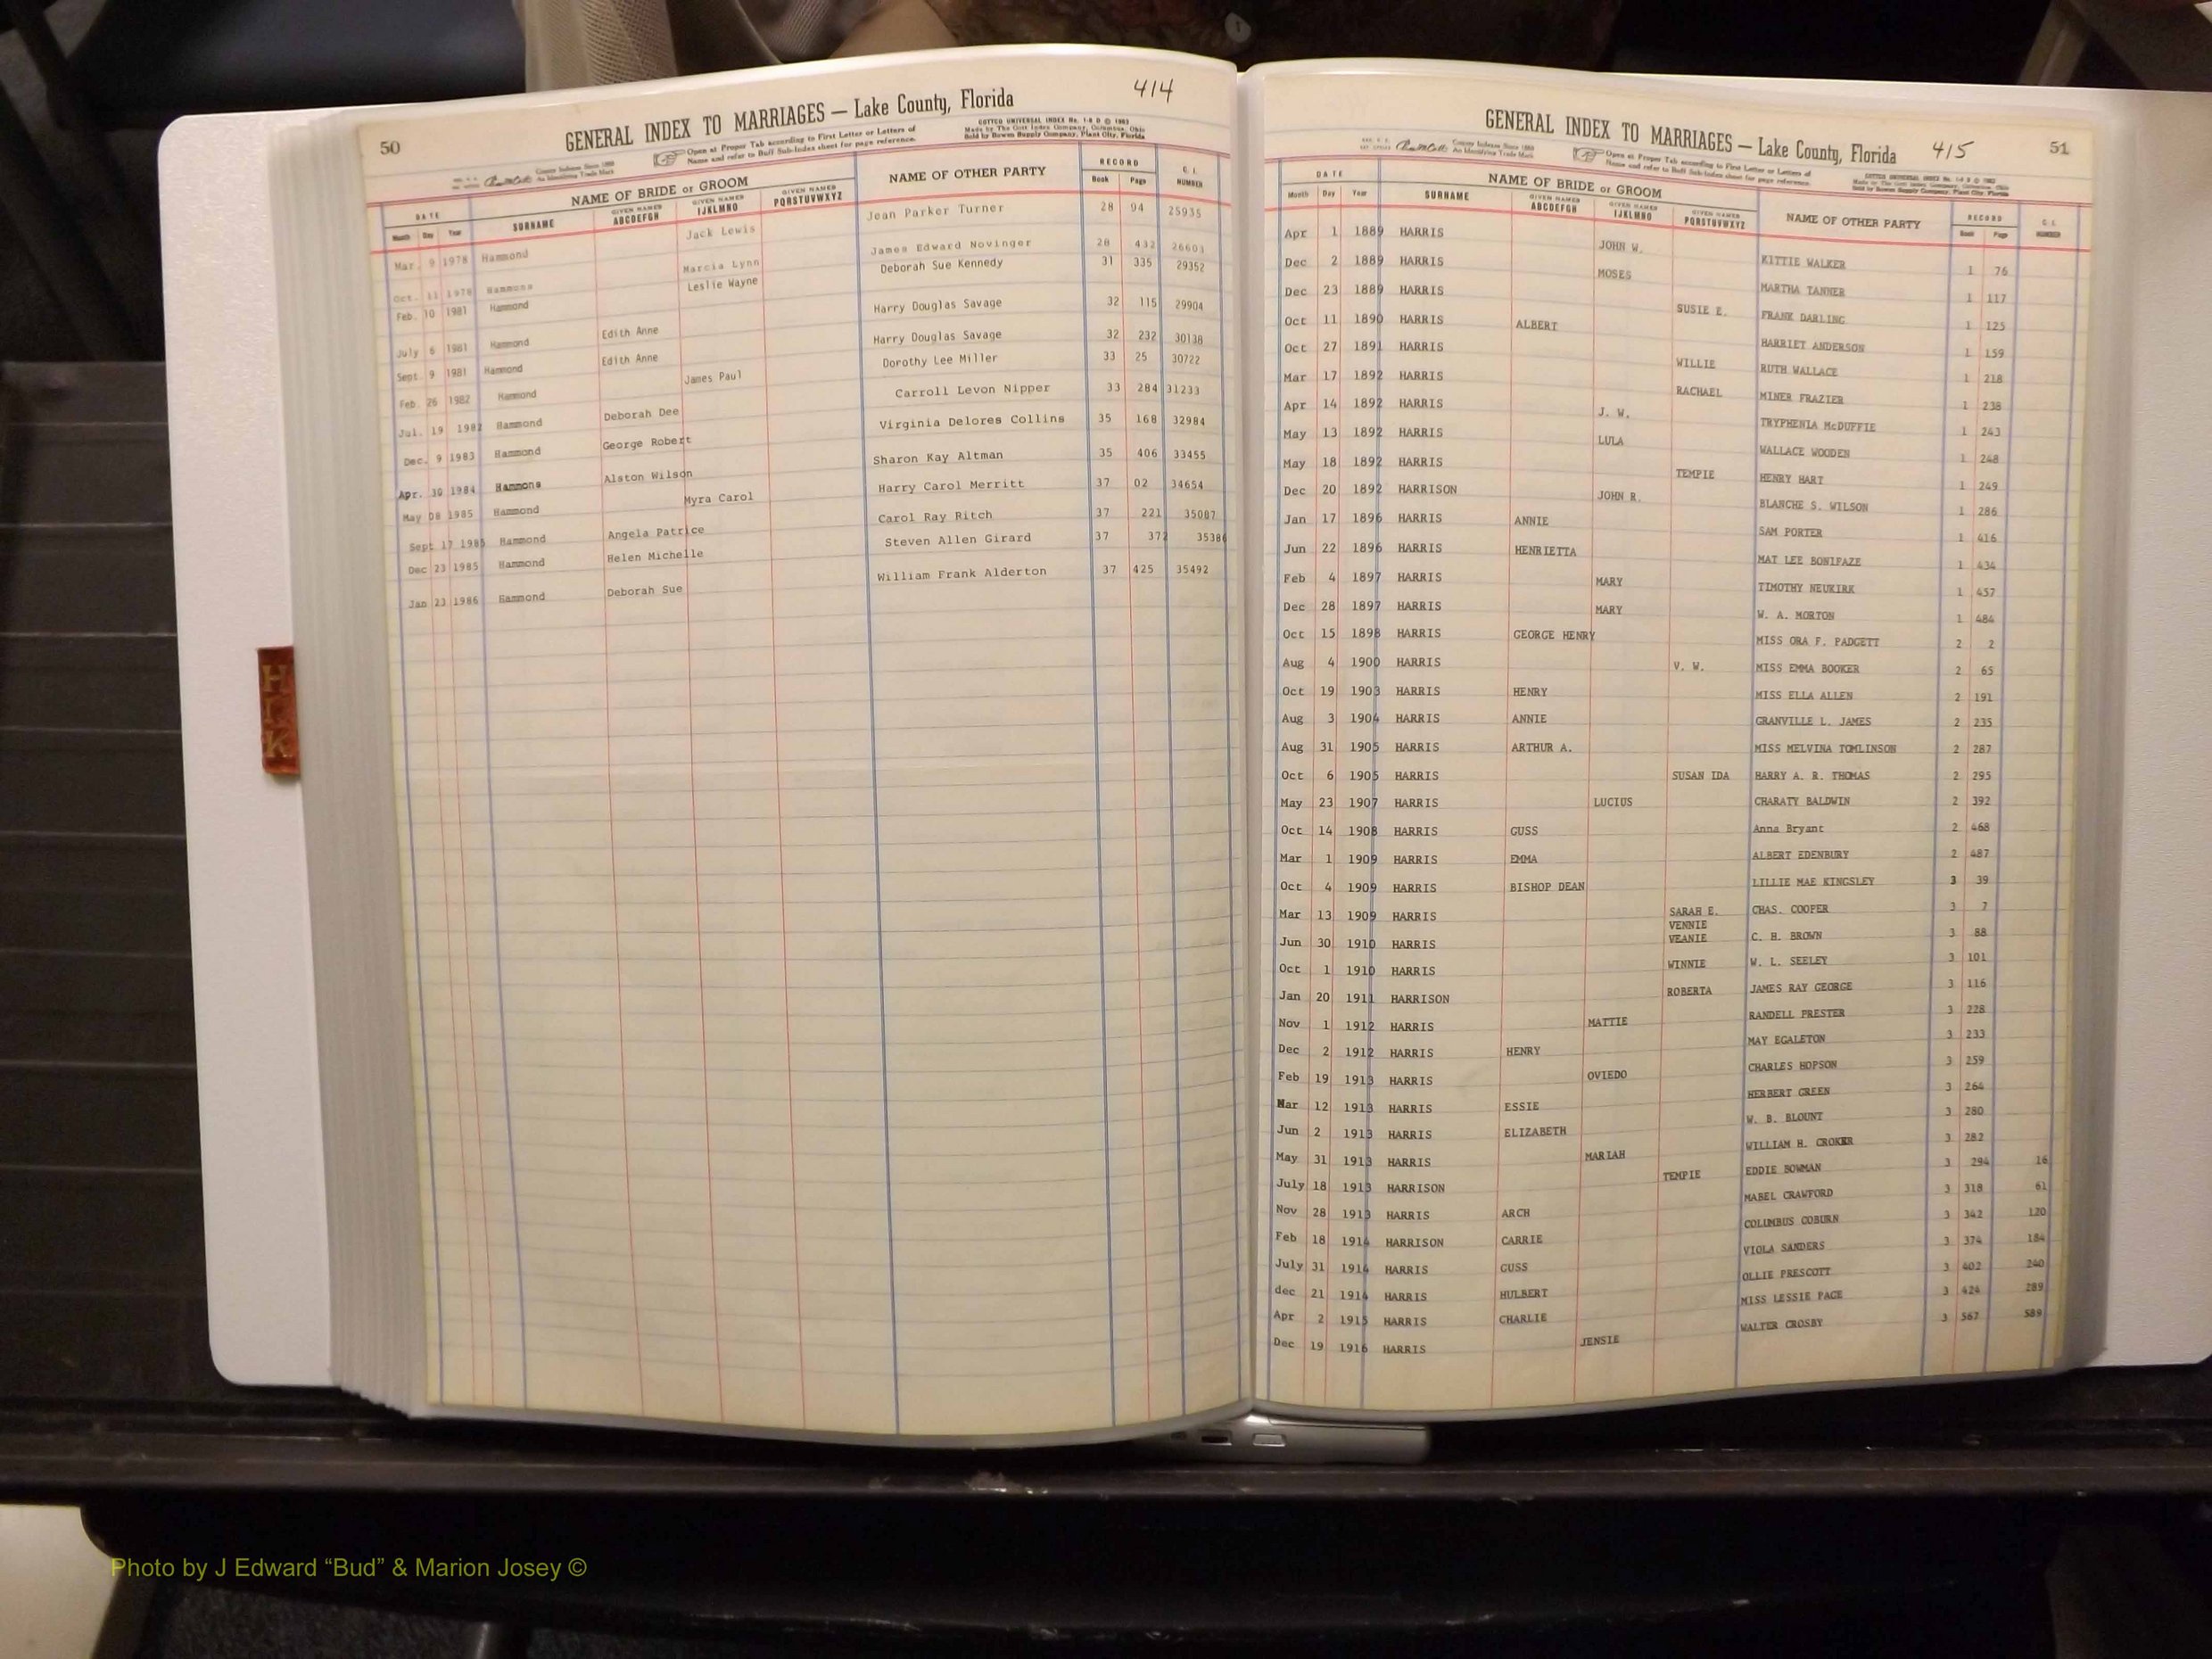 414
50
GENERAL INDEX TO MARRIAGES — Lake County, Florida
COTTCO UNIVERSAL INDEX No. 1-8 D © 1983
Made by The Cott Index Company, Columbus, Ohio
Sold by Bowen Supply Company, Plant City, Florida
County Indexes Since 1888
An Identifying Trade Mark
Open at Proper Tab according to First Letter or Letters of
Name and refer to Buff Sub-Index sheet for page reference.
DATE NAME OF BRIDE or GROOM NAME OF OTHER PARTY RECORD C. I. NUMBER
Month Day Year SURNAME GIVEN NAMES ABCDEFGH GIVEN NAMES IJKLMNO GIVEN NAMES PQRSTUVWXYZ Book Page
Mar. 9 1978 Hammond Jack Lewis Jean Parker Turner 28 94 25935
Oct. 11 1978 Hammons Marcia Lynn James Edward Novinger 28 432 26603
Feb. 10 1981 Hammond Leslie Wayne Deborah Sue Kennedy 31 335 29352
July 6 1981 Hammond Edith Anne Harry Douglas Savage 32 115 29904
Sept. 9 1981 Hammond Edith Anne Harry Douglas Savage 32 232 30138
Feb. 26 1982 Hammond James Paul Dorothy Lee Miller 33 25 30722
Jul. 19 1982 Hammond Deborah Dee Carroll Levon Nipper 33 284 31233
Dec. 9 1983 Hammond George Robert Virginia Delores Collins 35 168 32984
Apr. 30 1984 Hammons Alston Wilson Sharon Kay Altman 35 406 33455
May 08 1985 Hammond Myra Carol Harry Carol Merritt 37 02 34654
Sept 17 1985 Hammond Angela Patrice Carol Ray Ritch 37 221 35087
Dec 23 1985 Hammond Helen Michelle Steven Allen Girard 37 372 3538
Jan 23 1986 Hammond Deborah Sue William Frank Alderton 37 425 35492
H
I
K
GENERAL INDEX TO MARRIAGES — Lake County, Florida
415
51
County Indexes Since 1888
An Identifying Trade Mark
Open at Proper Tab according to First Letter or Letters of
Name and refer to Buff Sub-Index sheet for page reference.
COTTCO UNIVERSAL INDEX No. 1-8 D © 1983
Made by The Cott Index Company, Columbus, Ohio
Sold by Bowen Supply Company, Plant City, Florida
DATE NAME OF BRIDE or GROOM NAME OF OTHER PARTY RECORD C. I. NUMBER
Month Day Year SURNAME GIVEN NAMES ABCDEFGH GIVEN NAMES IJKLMNO GIVEN NAMES PQRSTUVWXYZ Book Page
Apr 1 1889 HARRIS JOHN W. KITTIE WALKER 1 76
Dec 2 1889 HARRIS MOSES MARTHA TANNER 1 117
Dec 23 1889 HARRIS SUSIE E. FRANK DARLING 1 125
Oct 11 1890 HARRIS ALBERT HARRIET ANDERSON 1 159
Oct 27 1891 HARRIS WILLIE RUTH WALLACE 1 218
Mar 17 1892 HARRIS RACHAEL MINER FRAZIER 1 238
Apr 14 1892 HARRIS J. W. TRYPHENIA McDUFFIE 1 243
May 13 1892 HARRIS LULA WALLACE WOODEN 1 248
May 18 1892 HARRIS TEMPIE HENRY HART 1 249
Dec 20 1892 HARRISON JOHN R. BLANCHE S. WILSON 1 286
Jan 17 1896 HARRIS ANNIE SAM PORTER 1 416
Jun 22 1896 HARRIS HENRIETTA MAT LEE BONIFAZE 1 434
Feb 4 1897 HARRIS MARY TIMOTHY NEUKIRK 1 457
Dec 28 1897 HARRIS MARY W. A. MORTON 1 484
Oct 15 1898 HARRIS GEORGE HENRY MISS ORA F. PADGETT 2 2
Aug 4 1900 HARRIS V. W. MISS EMMA BOOKER 2 65
Oct 19 1903 HARRIS HENRY MISS ELLA ALLEN 2 191
Aug 3 1904 HARRIS ANNIE GRANVILLE L. JAMES 2 235
Aug 31 1905 HARRIS ARTHUR A. MISS MELVINA TOMLINSON 2 287
Oct 6 1905 HARRIS SUSAN IDA HARRY A. R. THOMAS 2 295
May 23 1907 HARRIS LUCIUS CHARATY BALDWIN 2 392
Oct 14 1908 HARRIS GUSS Anna Bryant 2 468
Mar 1 1909 HARRIS EMMA ALBERT EDENBURY 2 487
Oct 4 1909 HARRIS BISHOP DEAN LILLIE MAE KINGSLEY 3 39
Mar 13 1909 HARRIS SARAH E. CHAS. COOPER 3 7
VENNIE
Jun 30 1910 HARRIS VEANIE C. H. BROWN 3 88
Oct 1 1910 HARRIS WINNIE W. L. SEELEY 3 101
Jan 20 1911 HARRISON ROBERTA JAMES RAY GEORGE 3 116
Nov 1 1912 HARRIS MATTIE RANDELL PRESTER 3 228
Dec 2 1912 HARRIS HENRY MAY EGALETON 3 233
Feb 19 1913 HARRIS OVIEDO CHARLES HOPSON 3 259
Mar 12 1913 HARRIS ESSIE HERBERT GREEN 3 264
Jun 2 1913 HARRIS ELIZABETH W. B. BLOUNT 3 280
May 31 1913 HARRIS MARIAH WILLIAM H. CROKER 3 282
July 18 1913 HARRISON TEMPIE EDDIE BOWMAN 3 294 16
Nov 28 1913 HARRIS ARCH MABEL CRAWFORD 3 318 61
Feb 18 1914 HARRISON CARRIE COLUMBUS COBURN 3 342 120
July 31 1914 HARRIS GUSS VIOLA SANDERS 3 374 184
dec 21 1914 HARRIS HULBERT OLLIE PRESCOTT 3 402 240
Apr 2 1915 HARRIS CHARLIE MISS LESSIE PAGE 3 424 289
Dec 19 1916 HARRIS JENSIE WALTER CROSBY 3 567 589
Photo by J Edward “Bud” & Marion Josey ©